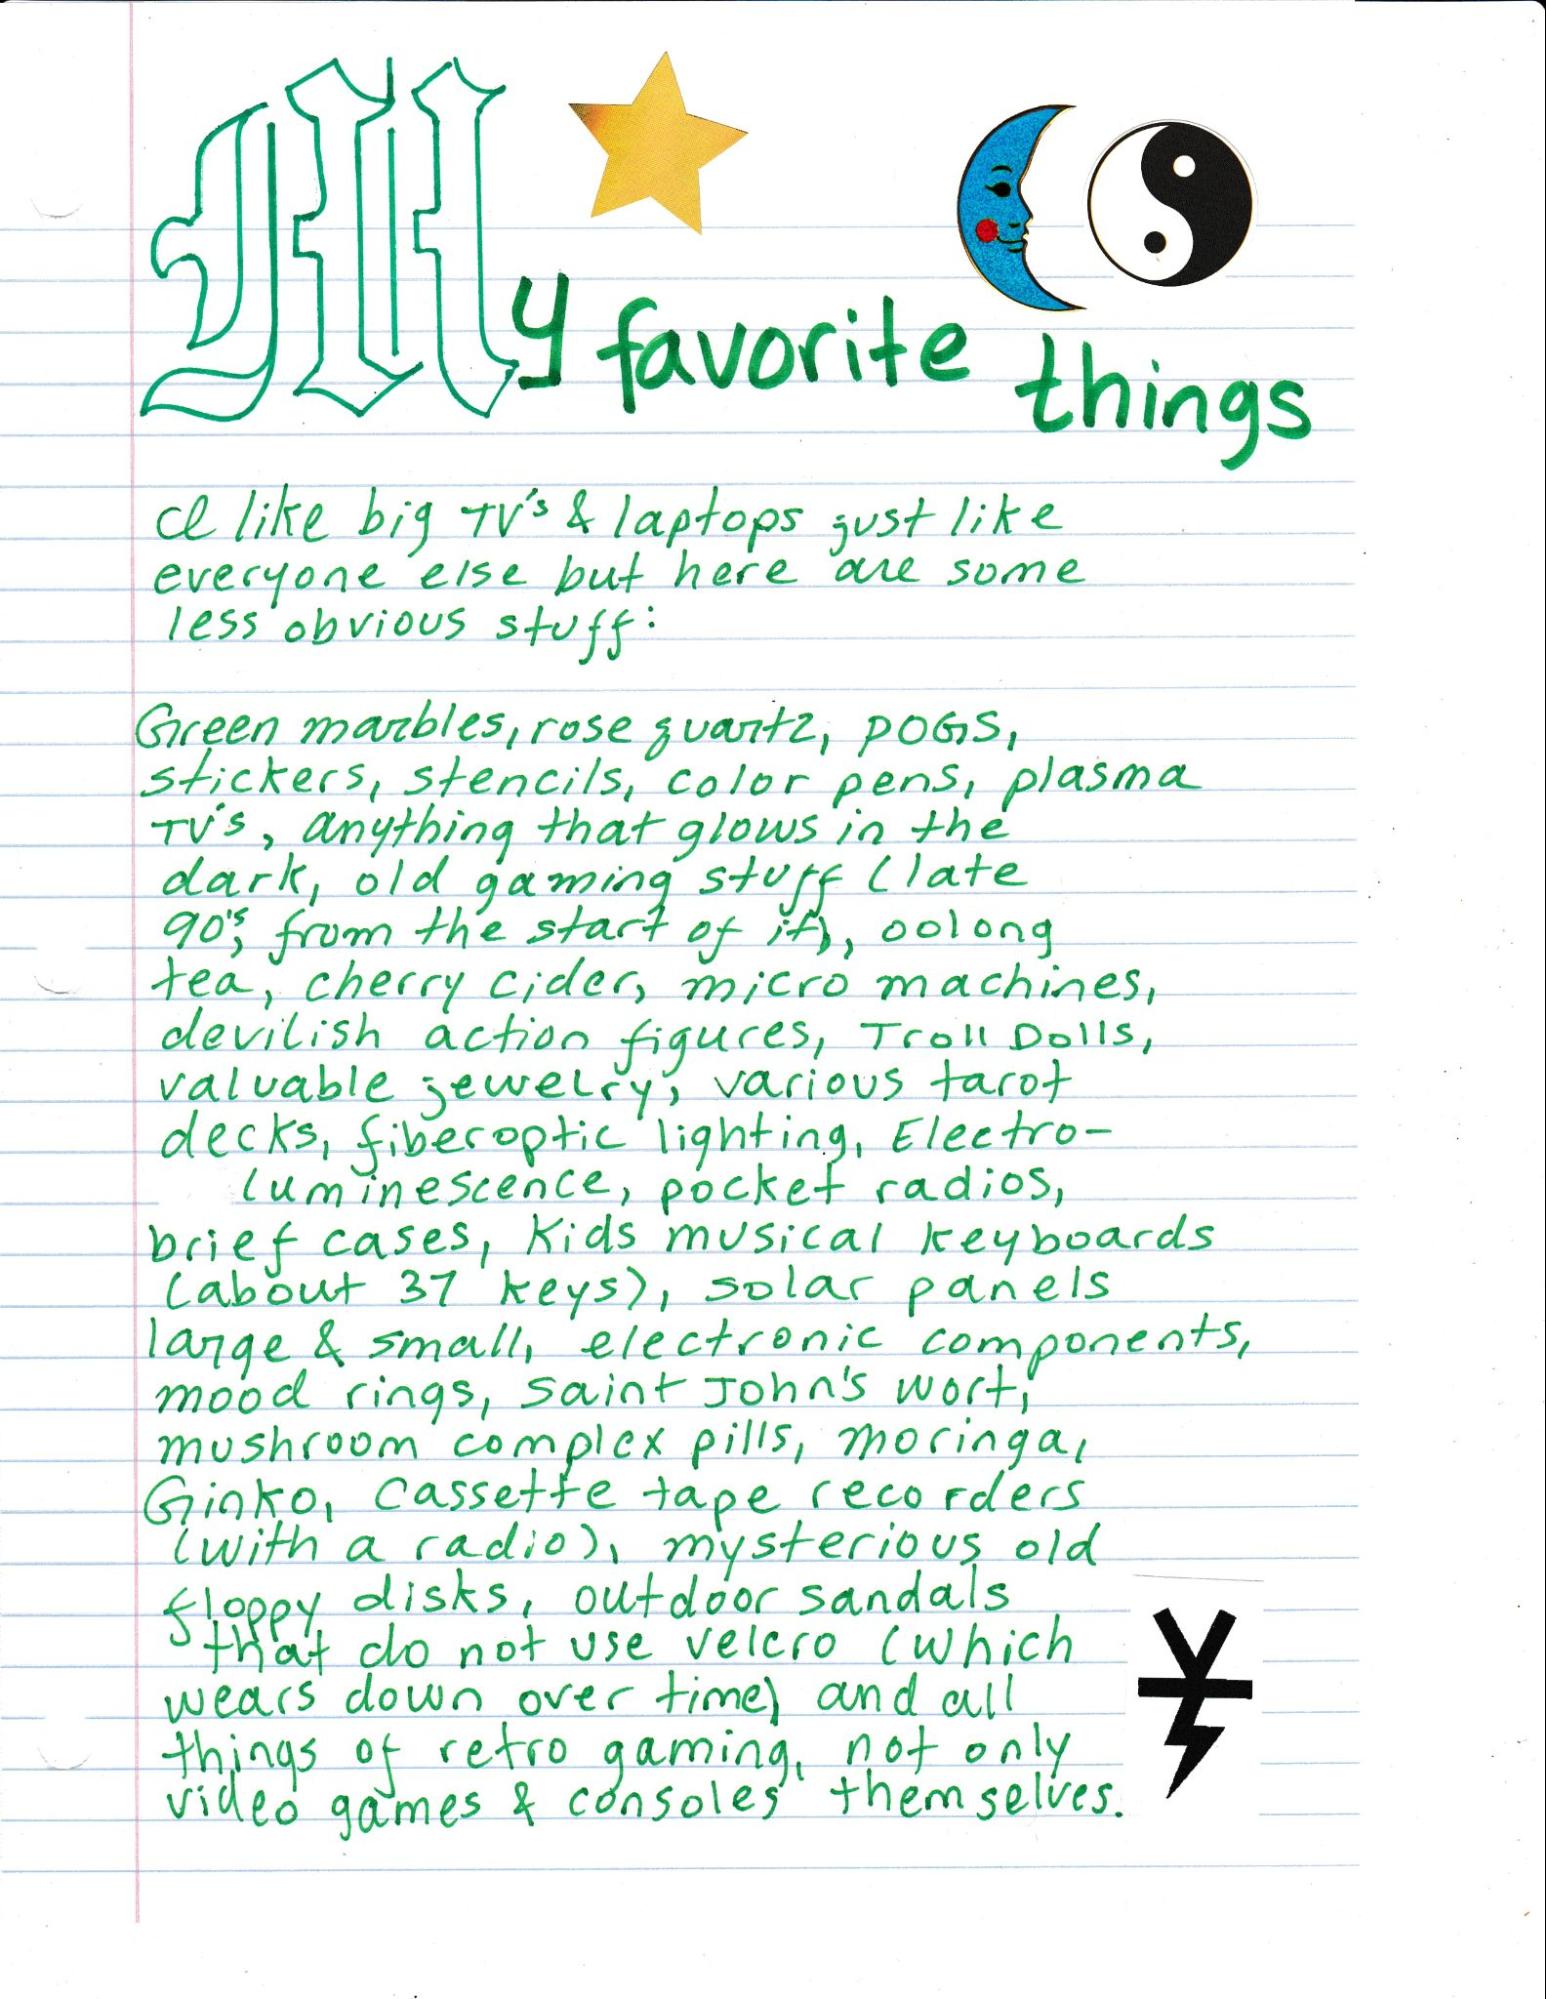 My favorite things
I like big TV's & laptops just like
everyone else but here are some
less obvious stuff:
Green marbles, rose quartz, POGS,
stickers, stencils, color pens, plasma
TV's, anything that glows in the
dark, old gaming stuff (late
90's, from the start of it), oolong
tea, cherry cider, micro machines,
devilish action figures, Troll Dolls,
valuable jewelry, various tarot
decks, fiberoptic lighting, Electro-
luminescence, pocket radios,
brief cases, Kids musical keyboards
(about 37 keys), solar panels
large & small, electronic components,
mood rings, Saint John's wort,
mushroom complex pills, moringa,
Ginko, cassette tape recorders
(with a radio), mysterious old
floppy disks, outdoor sandals
that do not use velcro (which
wears down over time) and all
things of retro gaming, not only
video games & consoles themselves.